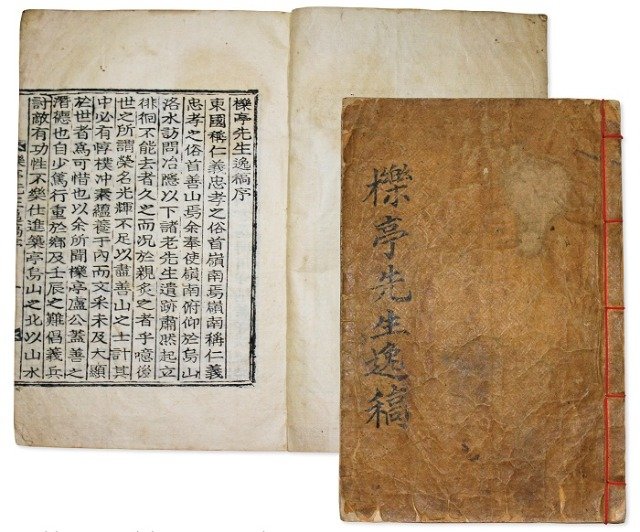 櫟亭先生逸稿序
東國稱仁義忠孝之俗首嶺南焉嶺南稱仁義
忠孝之俗首善山焉余奉使嶺南俯仰於烏山
洛水訪問冶隱以下諸老先生遺跡肅然起立
徘徊不能去者久之而况於親炙之者乎噫後
世之所謂榮名光輝不足以盡善山之士計其
中必有惇樸冲素蘊養于內而文采未及大顯
於世者爲可惜也以余所聞櫟亭盧公蓋善之
潛德也自少篤行重於鄉及壬辰之難倡義兵
討敵有功性不樂仕進築亭烏山之北以山水
櫟亭先生逸稿